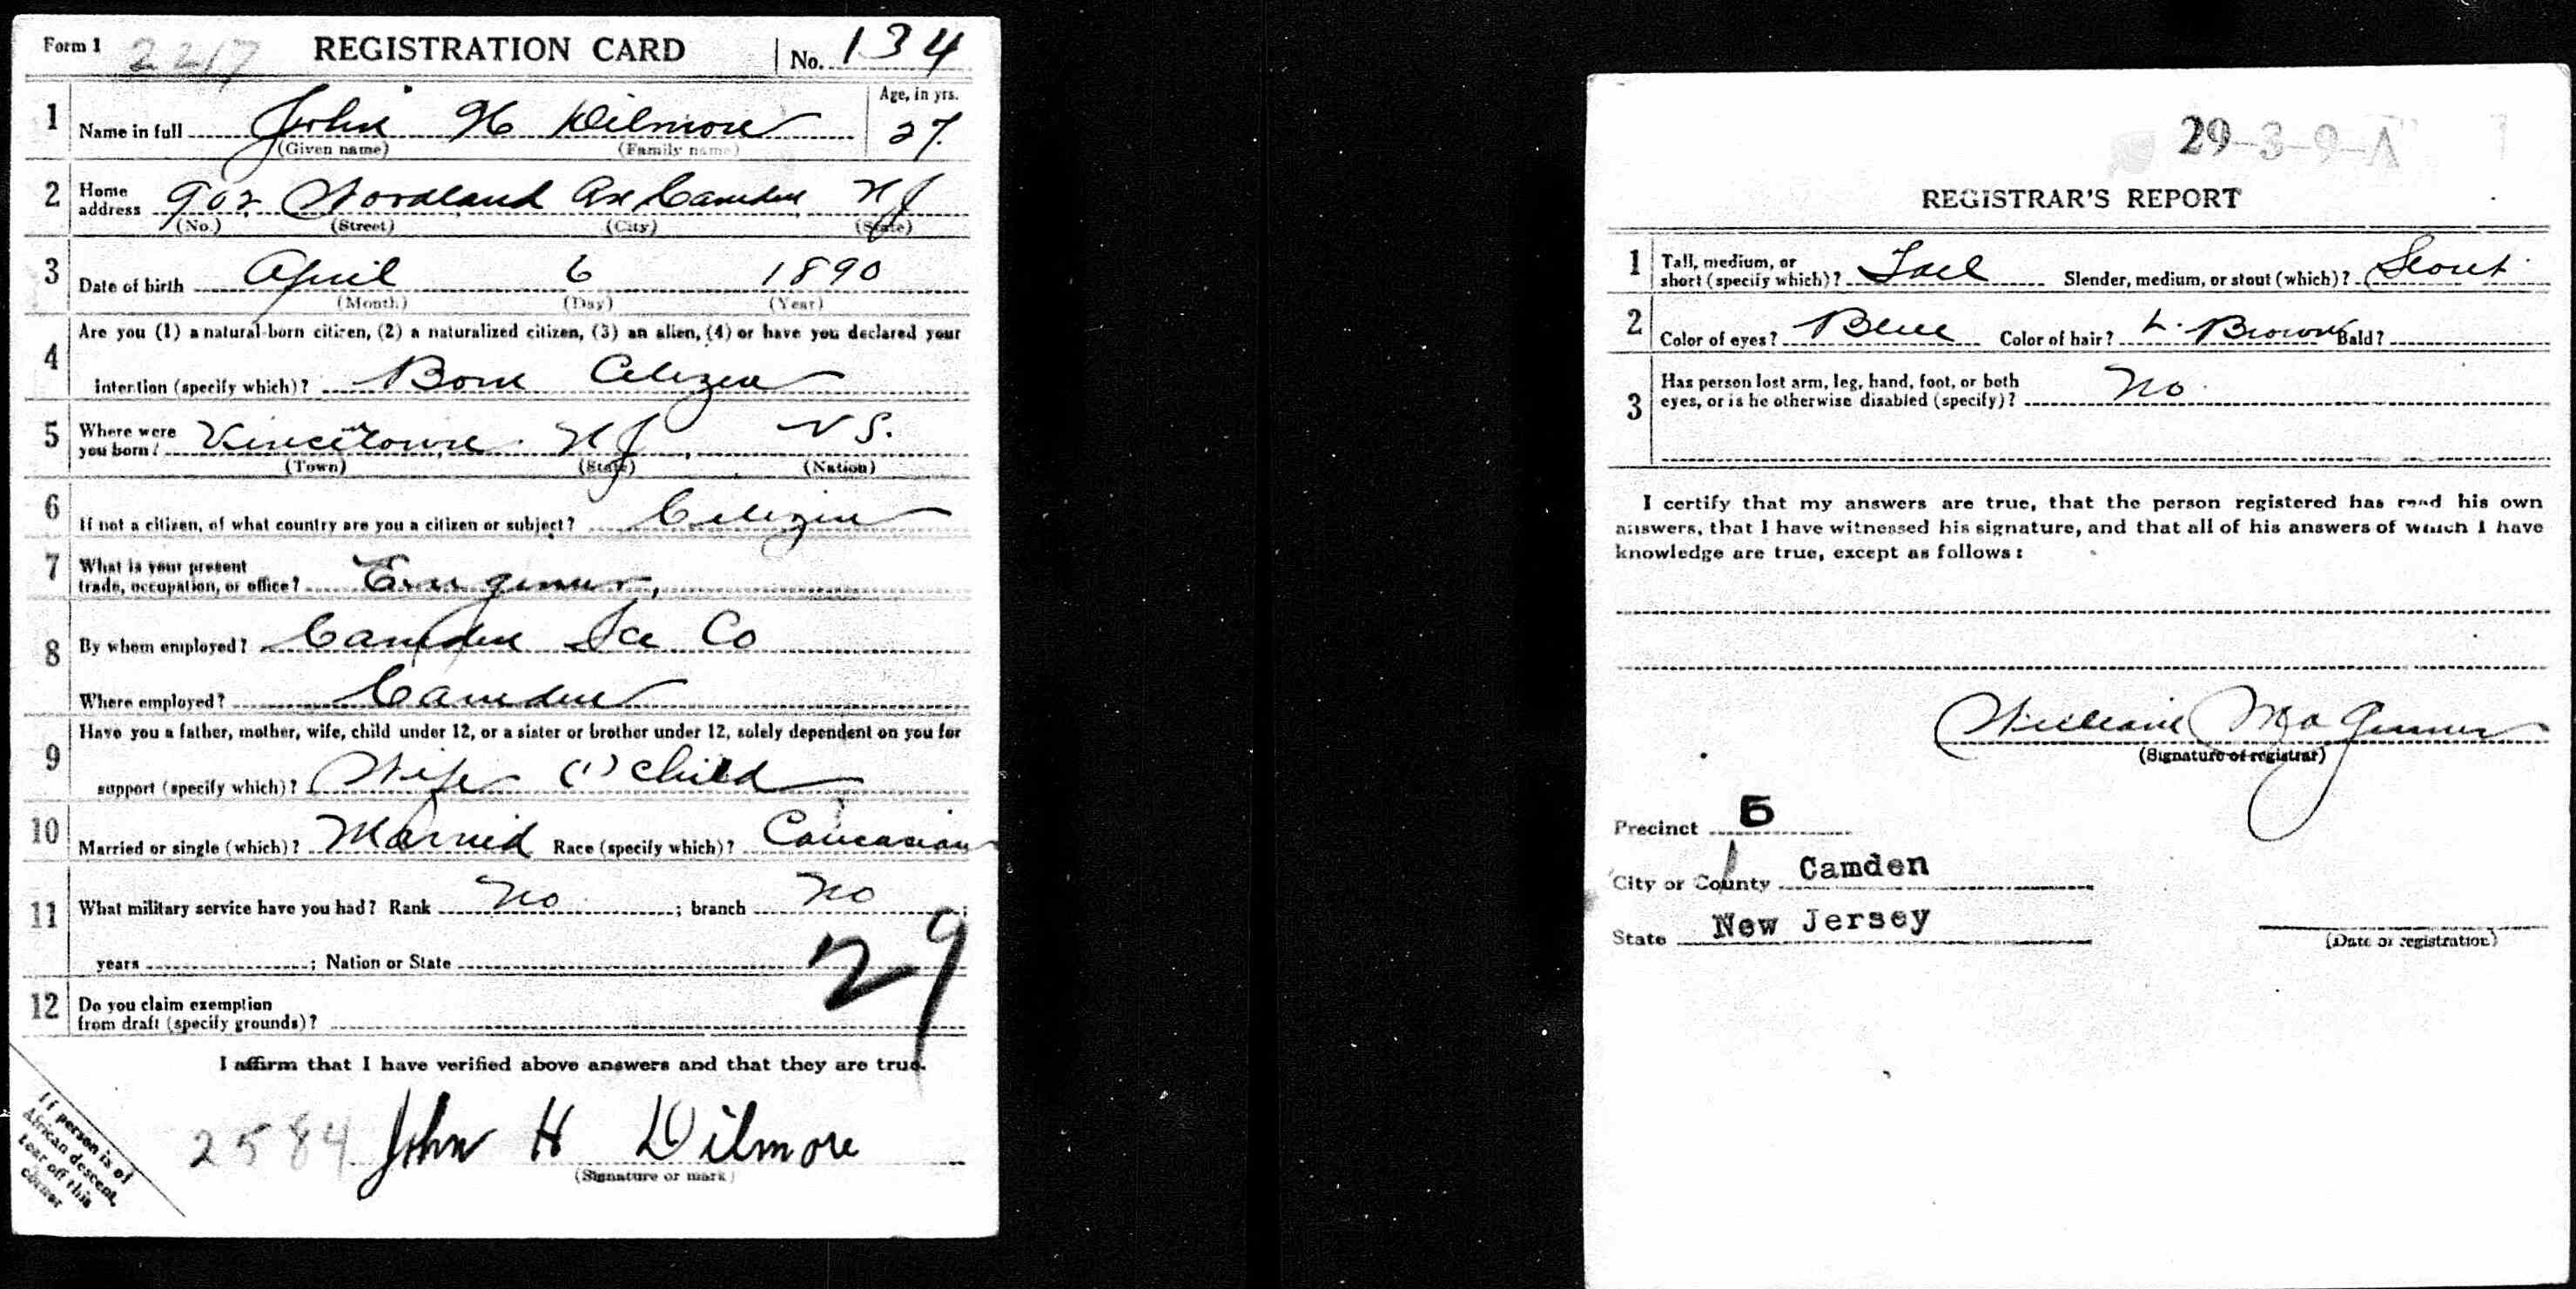 Form 1 2217 REGISTRATION CARD No. 134
1 Name in full John H Dilmore Age, in yrs. 27
(Given name) (Family name)
2 Home address 902 Woodland Ave Camden N J
(No.) (Street) (City) (State)
3 Date of birth April 6 1890
(Month) (Day) (Year)
4 Are you (1) a natural-born citizen, (2) a naturalized citizen, (3) an alien, (4) or have you declared your
intention (specify which)? Born Citizen
5 Where were you born? Vincetown N J U S.
(Town) (State) (Nation)
6 If not a citizen, of what country are you a citizen or subject? Citizen
7 What is your present
trade, occupation, or office? Engineer,
8 By whom employed? Camden Ice Co
Where employed? Camden
9 Have you a father, mother, wife, child under 12, or a sister or brother under 12, solely dependent on you for
support (specify which)? Wife (1) child
10 Married or single (which)? Married Race (specify which)? Caucasian
11 What military service have you had? Rank No ; branch No ;
years ; Nation or State
29
12 Do you claim exemption
from draft (specify grounds)?
I affirm that I have verified above answers and that they are true.
2584 John H Dilmore
(Signature or mark)
If person is of
African descent,
tear off this
corner
29-3-9-A
REGISTRAR'S REPORT
1 Tall, medium, or
short (specify which)? Tall Slender, medium, or stout (which)? Stout
2 Color of eyes? Blue Color of hair? L. Brown Bald?
3 Has person lost arm, leg, hand, foot, or both
eyes, or is he otherwise disabled (specify)? No
I certify that my answers are true, that the person registered has read his own
answers, that I have witnessed his signature, and that all of his answers of which I have
knowledge are true, except as follows:
William
(Signature of registrar)
Precinct 5
City or County Camden
State New Jersey
(Date of registration)